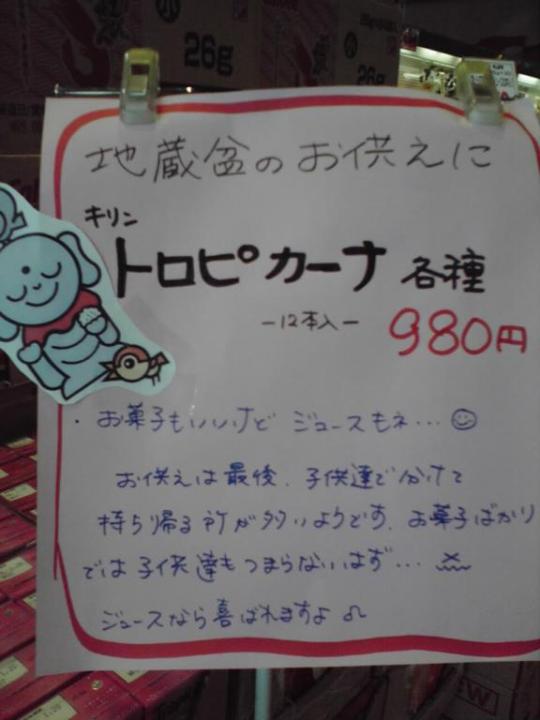 小
26g
小
26g
地蔵盆のお供えに
キリン
トロピカーナ 各種
－12本入－ 980円
・お菓子もいいけど ジュースもネ…
お供えは最後、子供達で分けて
持ち帰る所が多いようです。お菓子ばかり
では子供達もつまらないはず…
ジュースなら喜ばれますよ♫